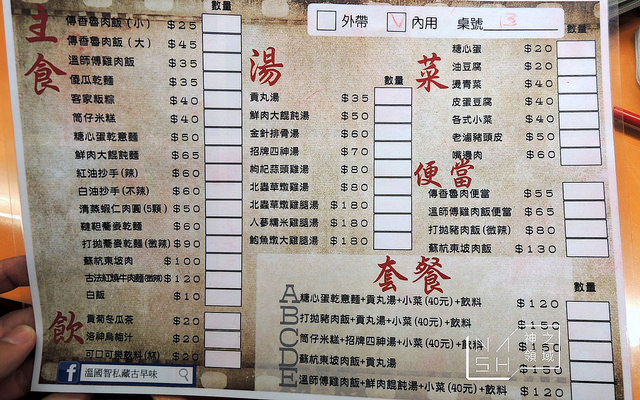 數量
外帶 V 內用 桌號 13
數量
主食
傳香魯肉飯(小) $25
傳香魯肉飯(大) $45
溫師傅雞肉飯 $35
傻瓜乾麵 $35
客家粄粽 $40
筒仔米糕 $40
糖心蛋乾意麵 $50
鮮肉大餛飩麵 $65
紅油抄手(辣) $60
白油抄手(不辣) $60
清蒸蝦仁肉圓(5顆) $50
韃靼蕎麥乾麵 $60
打拋蕎麥乾麵(微辣) $90
蘇杭東坡肉 $100
古法紅燒牛肉麵(微辣) $120
白飯 $10
飲
貢菊冬瓜茶 $20
洛神烏梅汁 $20
可口可樂飲料(杯) $20
f 溫國智私藏古早味
湯
數量
貢丸湯 $35
鮮肉大餛飩湯 $50
金針排骨湯 $60
招牌四神湯 $70
枸杞蒜頭雞湯 $80
北蟲草燉雞湯 $80
北蟲草燉雞腿湯 $180
人蔘糯米雞腿湯 $180
鮑魚燉大雞腿湯 $180
菜
糖心蛋 $20
油豆腐 $20
燙青菜 $40
皮蛋豆腐 $40
各式小菜 $40
老滷豬頭皮 $50
嘴邊肉 $60
便當
傳香魯肉便當 $55
溫師傅雞肉飯便當 $65
打拋豬肉飯(微辣) $80
蘇杭東坡肉飯 $130
套餐
數量
A 糖心蛋乾意麵+貢丸湯+小菜(40元)+飲料 $120
B 打拋豬肉飯+貢丸湯+小菜(40元)+飲料 $150
C 筒仔米糕+招牌四神湯+小菜(40元)+飲料 $150
D 蘇杭東坡肉飯+貢丸湯 $150
E 溫師傅雞肉飯+鮮肉餛飩湯+小菜(40元)+飲料 $120
神之領域